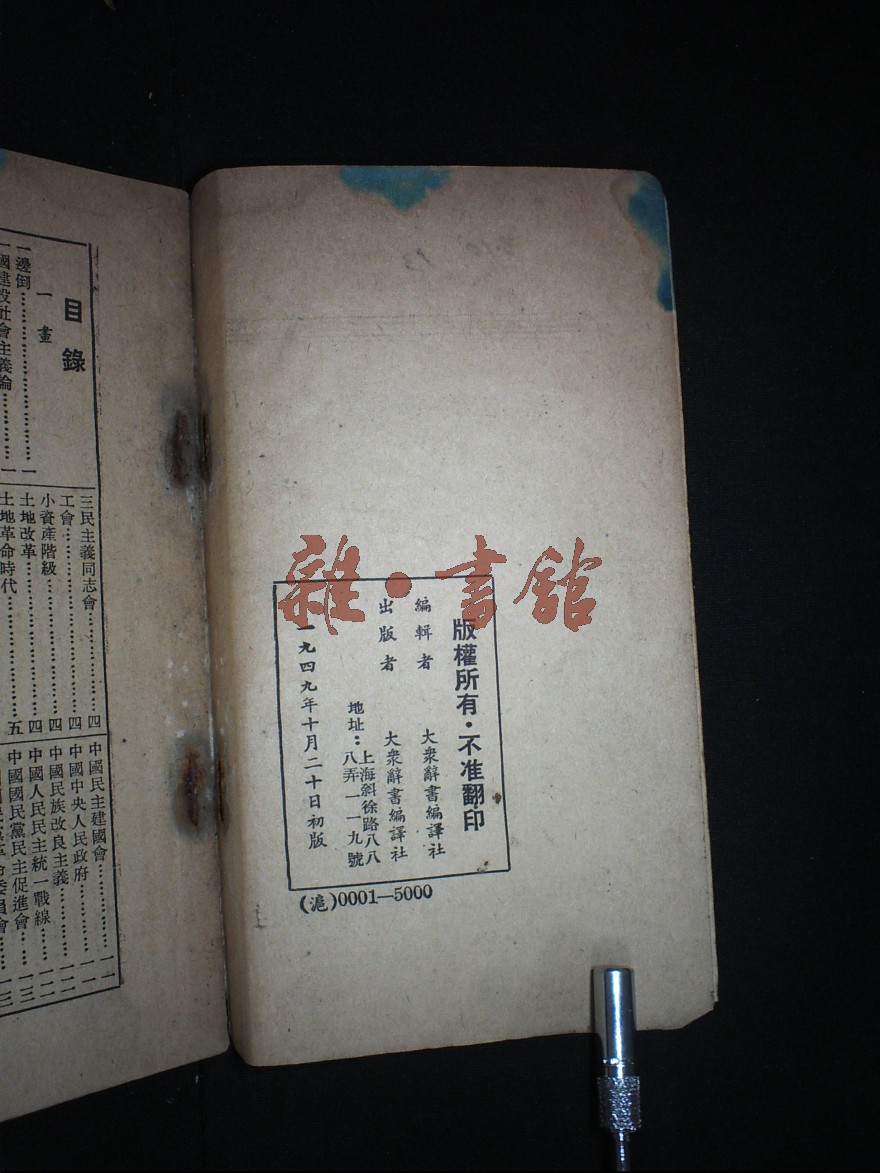 版權所有·不准翻印
編輯者 大衆辭書編譯社
出版者 大衆辭書編譯社
地址：上海斜徐路八八
八弄一一九號
一九四九年十月二十日初版
(滬)0001—5000
雜·書館
目錄
一畫
一邊倒……一
一國建設社會主義論……一
三民主義同志會……四
工會……四
小資產階級……四
土地改革……四
土地革命時代……五
中國民主建國會……一一
中國中央人民政府……一一
中國民族改良主義……一二
中國人民民主統一戰線……一二
中國國民黨民主促進會……一三